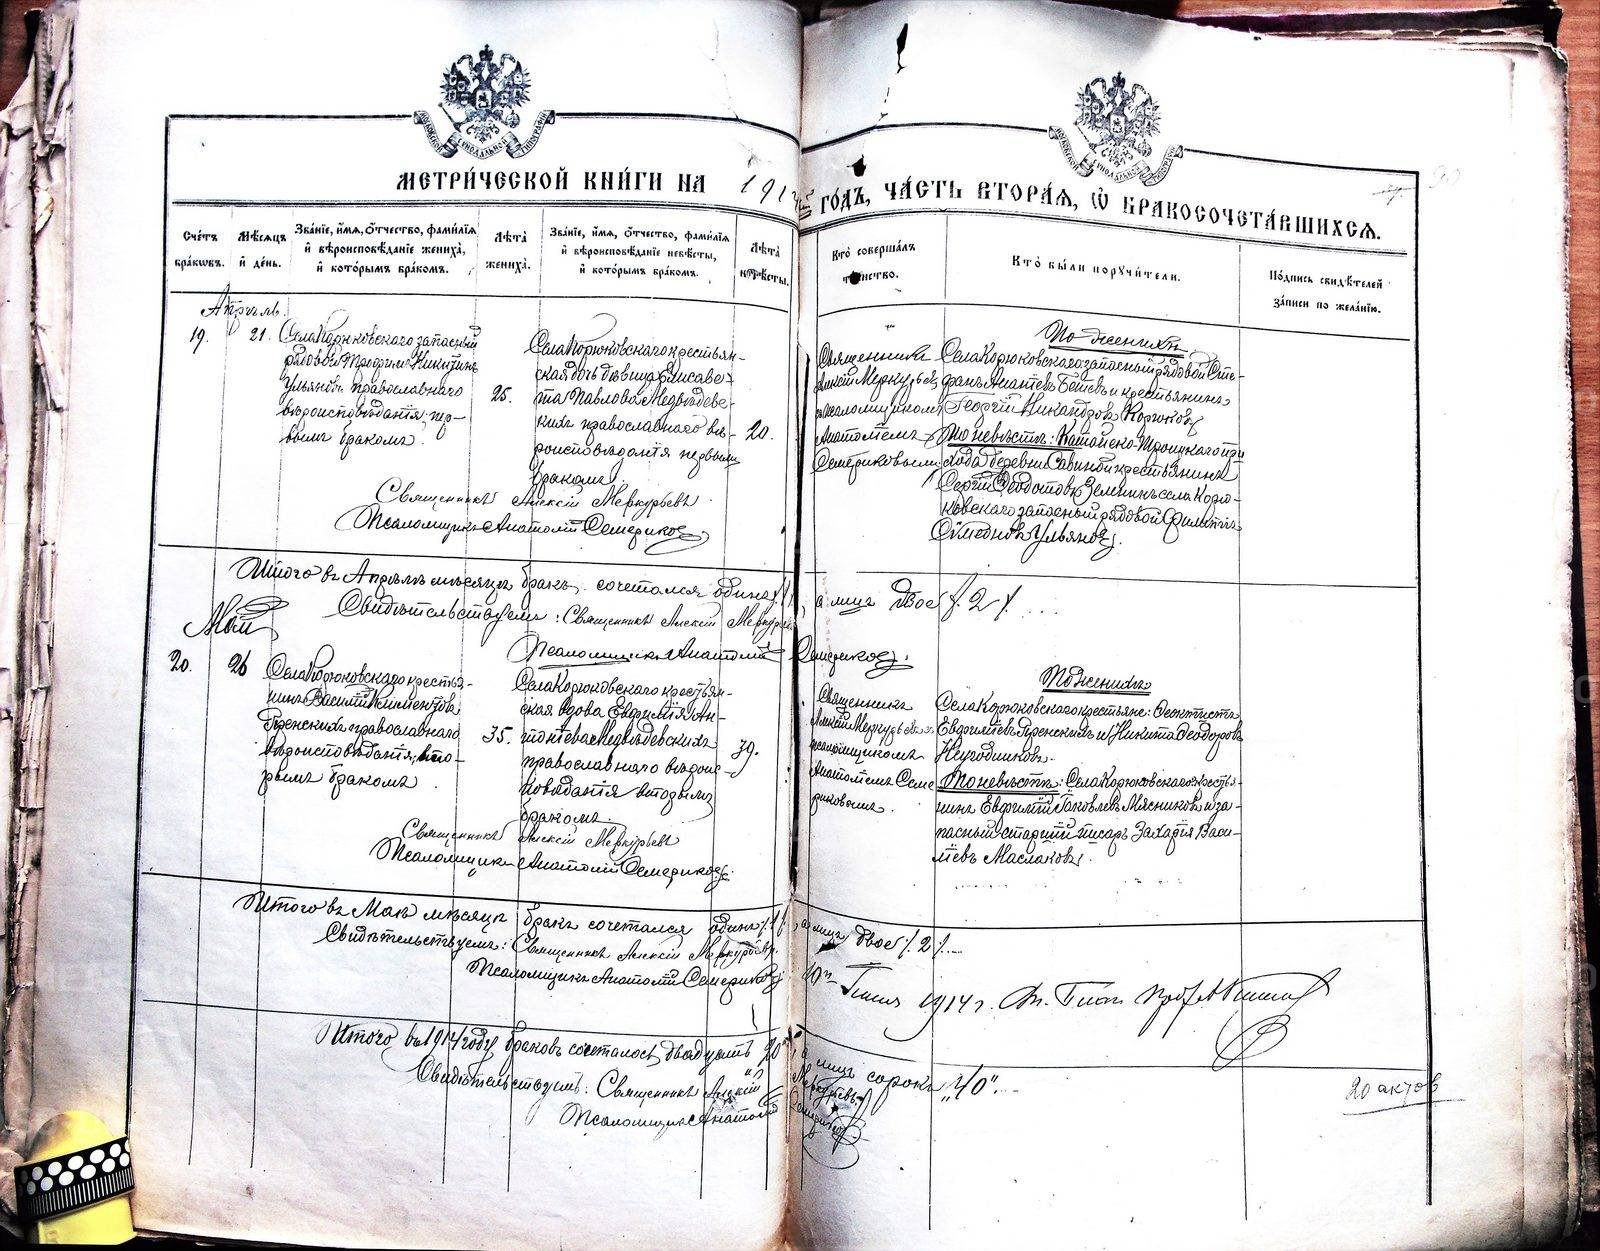 МОСКОВСКОЙ СѴНОДАЛЬНОЙ ТИПОГРАФІИ
МОСКОВСКОЙ СѴНОДАЛЬНОЙ ТИПОГРАФІИ
МЕТРИ́ЧЕСКОЙ КНИ́ГИ НА 1914 ГОДЪ, ЧА́СТЬ ВТОРА́Я, Ѽ БРАКОСОЧЕТА́ВШИХСЯ.
Сче́тъ бра́ковъ.
Мѣ́сяцъ и́ де́нь.
Зва́нїе, и́мя, о́тчество, фами́лїя и́ вѣроисповѣ́данїе жениха̀, и́ кото́рымъ бра́комъ.
Лѣ́та жениха̀.
Зва́нїе, и́мя, о́тчество, фами́лїя и́ вѣроисповѣ́данїе невѣ́сты, и́ кото́рымъ бра́комъ.
Лѣ́та невѣ́сты.
Кто̀ соверша́лъ таинство.
Кто̀ бы́ли поручи́тели.
По́дпись свидѣ́телей за́писи по жела́нїю.
Апрѣль
19.
21.
Села Корюковскаго запасный
рядовой Трофимъ Никитинъ
Ульяновъ православнаго
вѣроисповѣданія, пер-
вымъ бракомъ.
25.
Села Корюковскаго крестьян-
ская дочь дѣвица Елисаве-
та Павлова Медвѣдев-
скихъ православнаго вѣ-
роисповѣданія первымъ
бракомъ.
20.
Священникъ
Алексій Меркурьевъ
съ псаломщикомъ
Анатоліемъ
Семериковымъ
По женихѣ:
Села Корюковскаго запасный рядовой Сте-
фанъ и крестьянинъ
Георгій Никандровъ Корюковъ
По невѣстѣ: Катайско-Троицкаго при-
хода деревни Савиной крестьянинъ
Сергій Ѳеодотовъ Земнинъ села Корю-
ковскаго запасный рядовой Филиппъ
Сѵмеоновъ Ульяновъ.
Священникъ Алексій Меркурьевъ
Псаломщикъ Анатолій Семериковъ
Итого въ Апрѣлѣ мѣсяцѣ бракъ сочетался одинъ /1/, а лицъ двое /2/.
Свидѣтельствуемъ: Священникъ Алексій Меркурьевъ
Псаломщикъ Анатолій Семериковъ.
Май
20.
26
Села Корюковскаго крестья-
нинъ Василій Климентовъ
православнаго
вѣроисповѣданія, вто-
рымъ бракомъ.
35.
Села Корюковскаго крестьян-
ская вдова Евфимія Ан-
тоніева Медвѣдевскихъ
православнаго вѣроис-
повѣданія вторымъ
бракомъ.
39.
Священникъ
Алексій Меркурьевъ съ
псаломщикомъ
Анатоліемъ Семе-
риковымъ.
По женихѣ
Села Корюковскаго крестьяне: Ѳеоктистъ
Евфиміевъ и Никита Ѳеодоровъ
Негодниковъ.
По невѣстѣ: Села Корюковскаго крестья-
нинъ Евфимій Іаковлевъ Мясниковъ и за-
пасный старшій писарь Захарія Васи-
ліевъ Маслаковъ.
Священникъ Алексій Меркурьевъ
Псаломщикъ Анатолій Семериковъ.
Итого въ Маѣ мѣсяцѣ бракъ сочетался одинъ /1/, а лицъ двое /2/.
Свидѣтельствуемъ: Священникъ Алексій Меркурьевъ.
Псаломщикъ Анатолій Семериковъ
1914 г.
Итого въ 1914 году браковъ сочеталось двадцать „20“, а лицъ сорокъ „40“.
Свидѣтельствуемъ: Священникъ Алексій Меркурьевъ.
Псаломщикъ Анатолій Семериковъ
20 актов